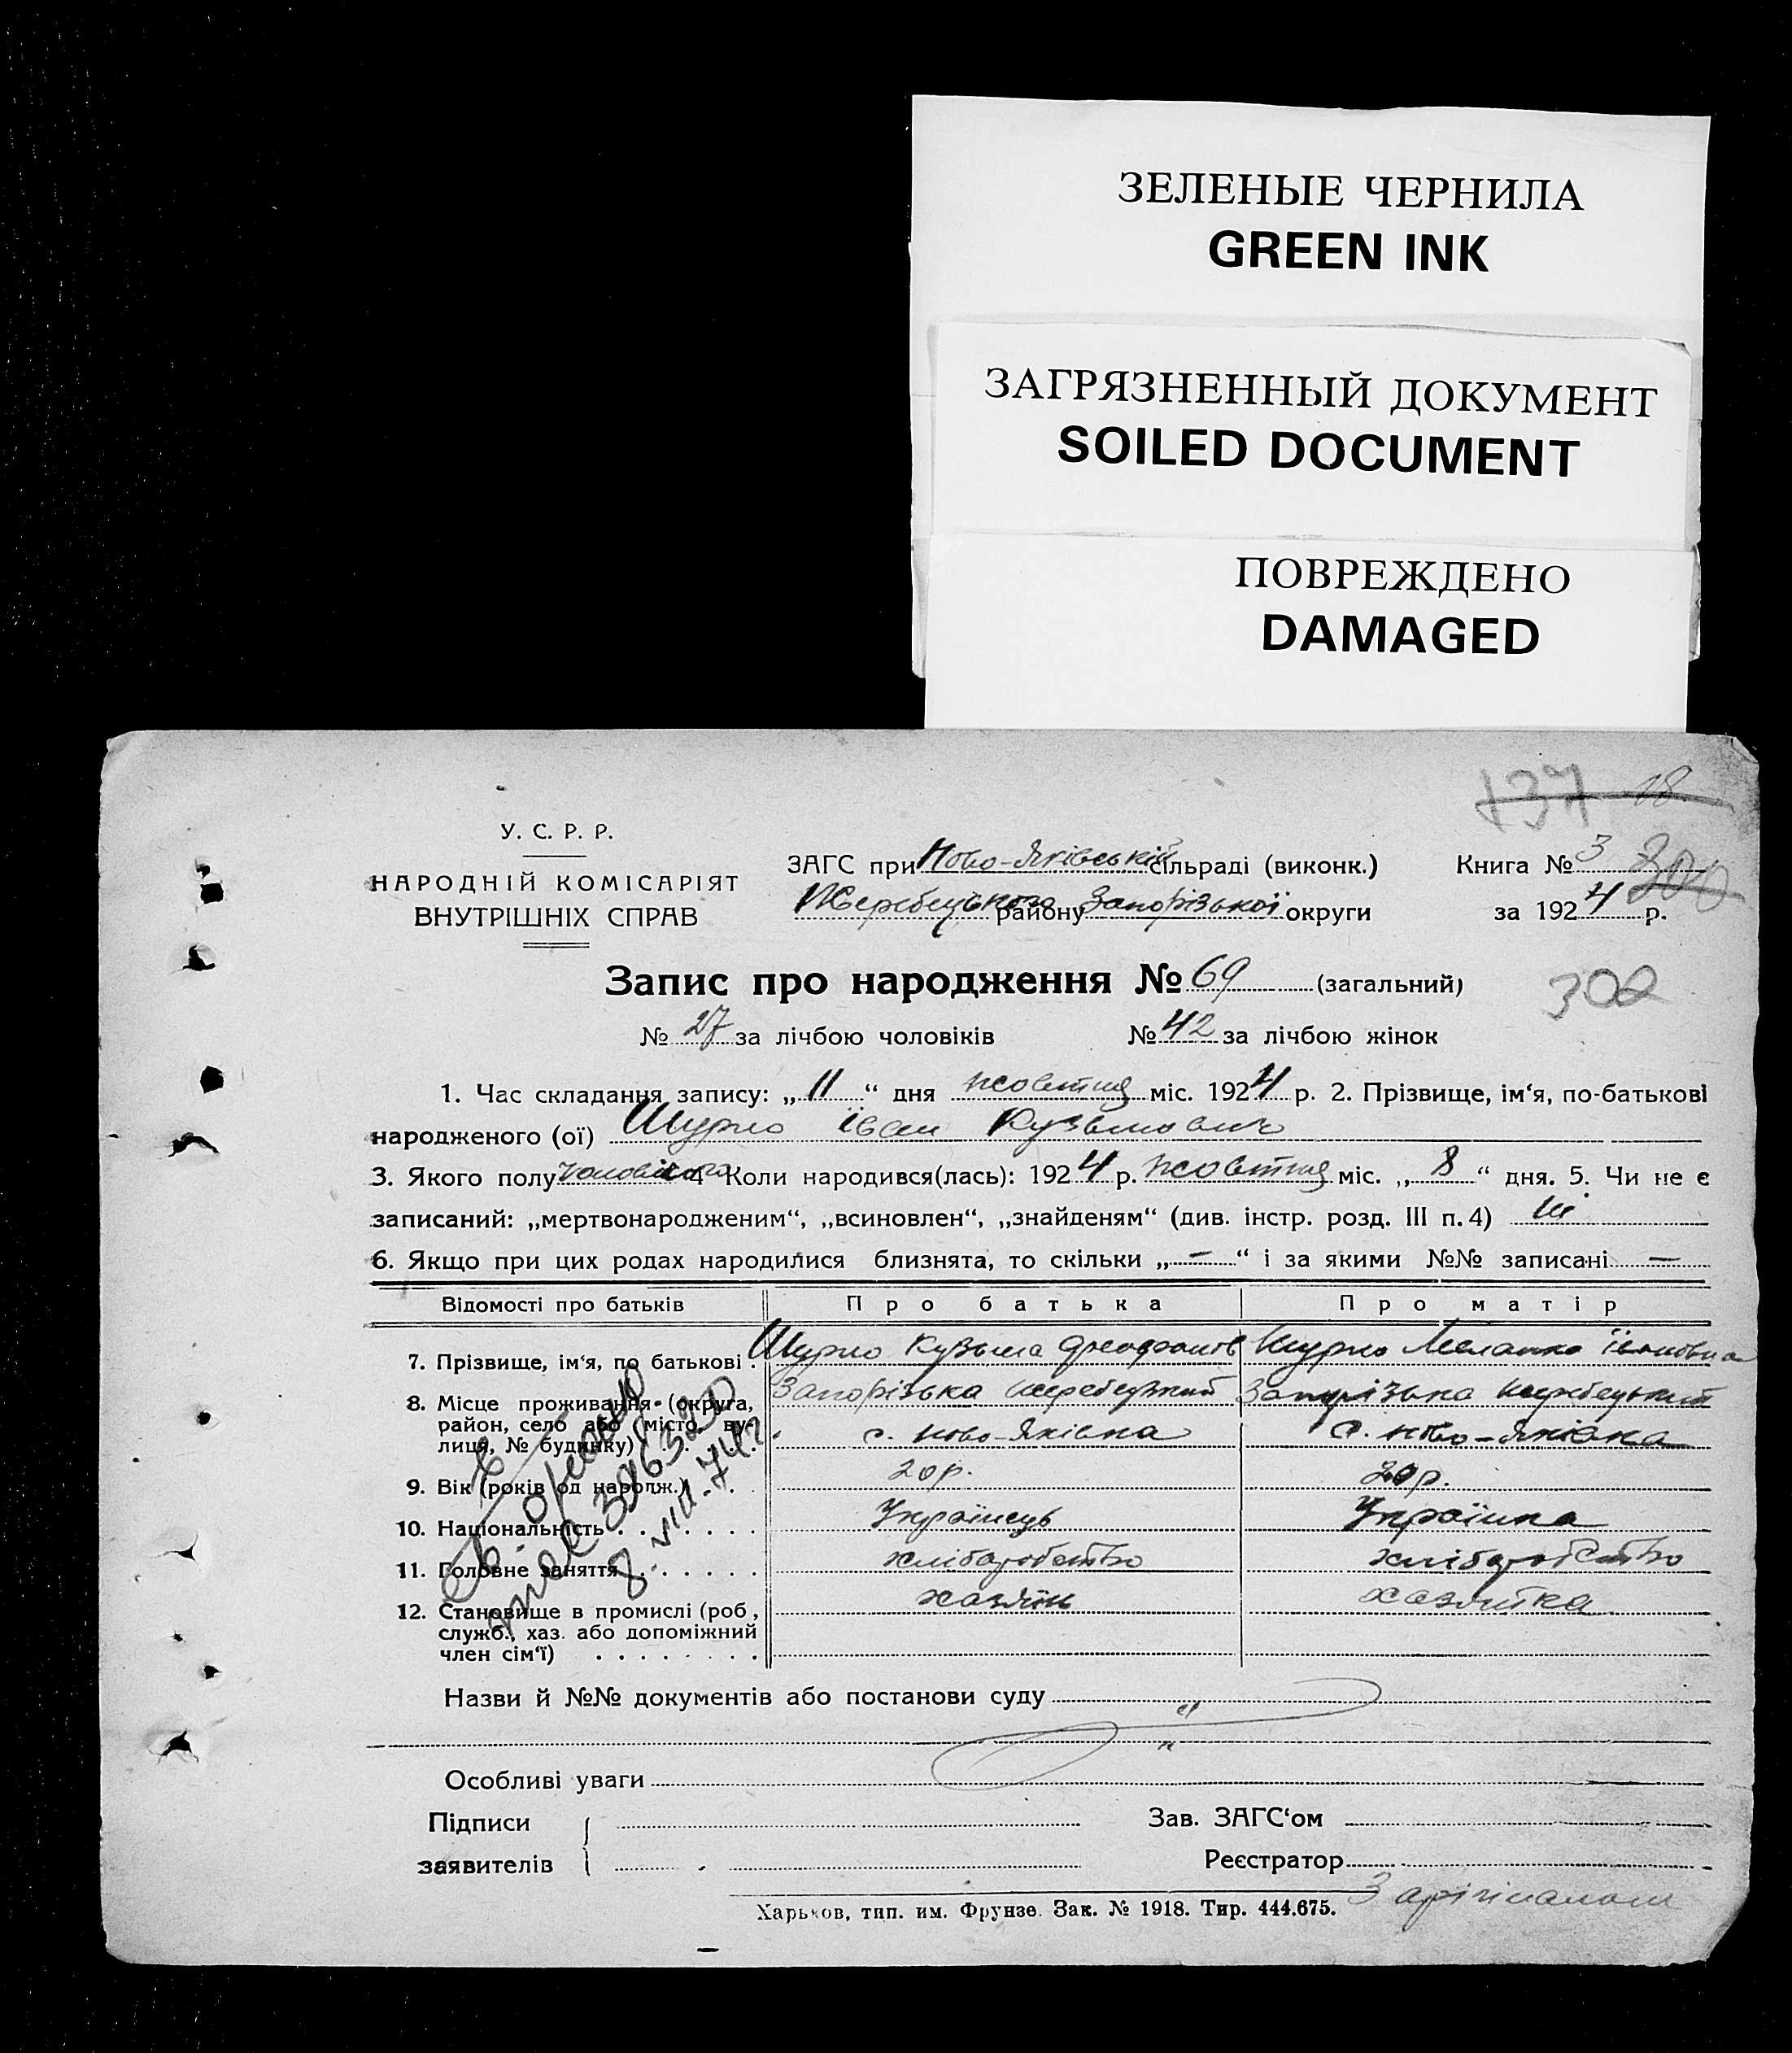 ЗЕЛЕНЫЕ ЧЕРНИЛА
GREEN INK
ЗАГРЯЗНЕННЫЙ ДОКУМЕНТ
SOILED DOCUMENT
ПОВРЕЖДЕНО
DAMAGED
137 18
У. С. Р. Р.
НАРОДНІЙ КОМІСАРІЯТ
ВНУТРІШНІХ СПРАВ
ЗАГС при Ново-Яківській сільраді (виконк.)
Жеребецького району Запорізької округи
Книга № 3 300
за 1924 р.
Запис про народження № 69 (загальний)
302
№ 27 за лічбою чоловіків № 42 за лічбою жінок
1. Час складання запису: „11“ дня жовтня міс. 1924 р. 2. Прізвище, ім‘я, по-батькові
народженого (ої) Шурло Іван Кузьмович
3. Якого полу чоловічого 4 Коли народився(лась): 1924 р. жовтня міс. „8“ дня. 5. Чи не є
записаний: „мертвонародженим“, „всиновлен“, „знайденям“ (див. інстр. розд. III п. 4) ні
6. Якщо при цих родах народилися близнята, то скільки „—“ і за якими №№ записані —
Відомості про батьків Про батька Про матір
7. Прізвище, ім‘я, по батькові Шурло Кузьма Шурло Меланка Івановна
8. Місце проживання (округа, Запорізька жеребецький Запорізька жеребецький
район, село або місто, ву-
лиця, № будинку) с. Ново-Яківка с. Ново-Яківка
9. Вік (років од народж.) 20 р. 20 р.
10. Національність Українець Українка
11. Головне заняття хліборобство хліборобство
12. Становище в промислі (роб, хазяїн хазяйка
служб., хаз. або допоміжний
член сім‘ї)
Назви й №№ документів або постанови суду "
"
Особливі уваги
Підписи
заявителів
Зав. ЗАГС‘ом
Реєстратор
З орігіналом
Харьков, тип. им. Фрунзе. Зак. № 1918. Тир. 444.675.